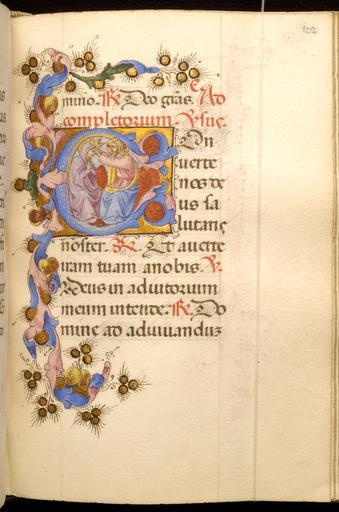 102
mino. R Deo grās. Ad
completorium. Vsus.
Con
uerte
nos de
us sa
lutaris
noster. R. Et auerte
iram tuam a nobis. V.
Deus in adiutorium
meum intende. R. Do
mine ad adiuuanduz